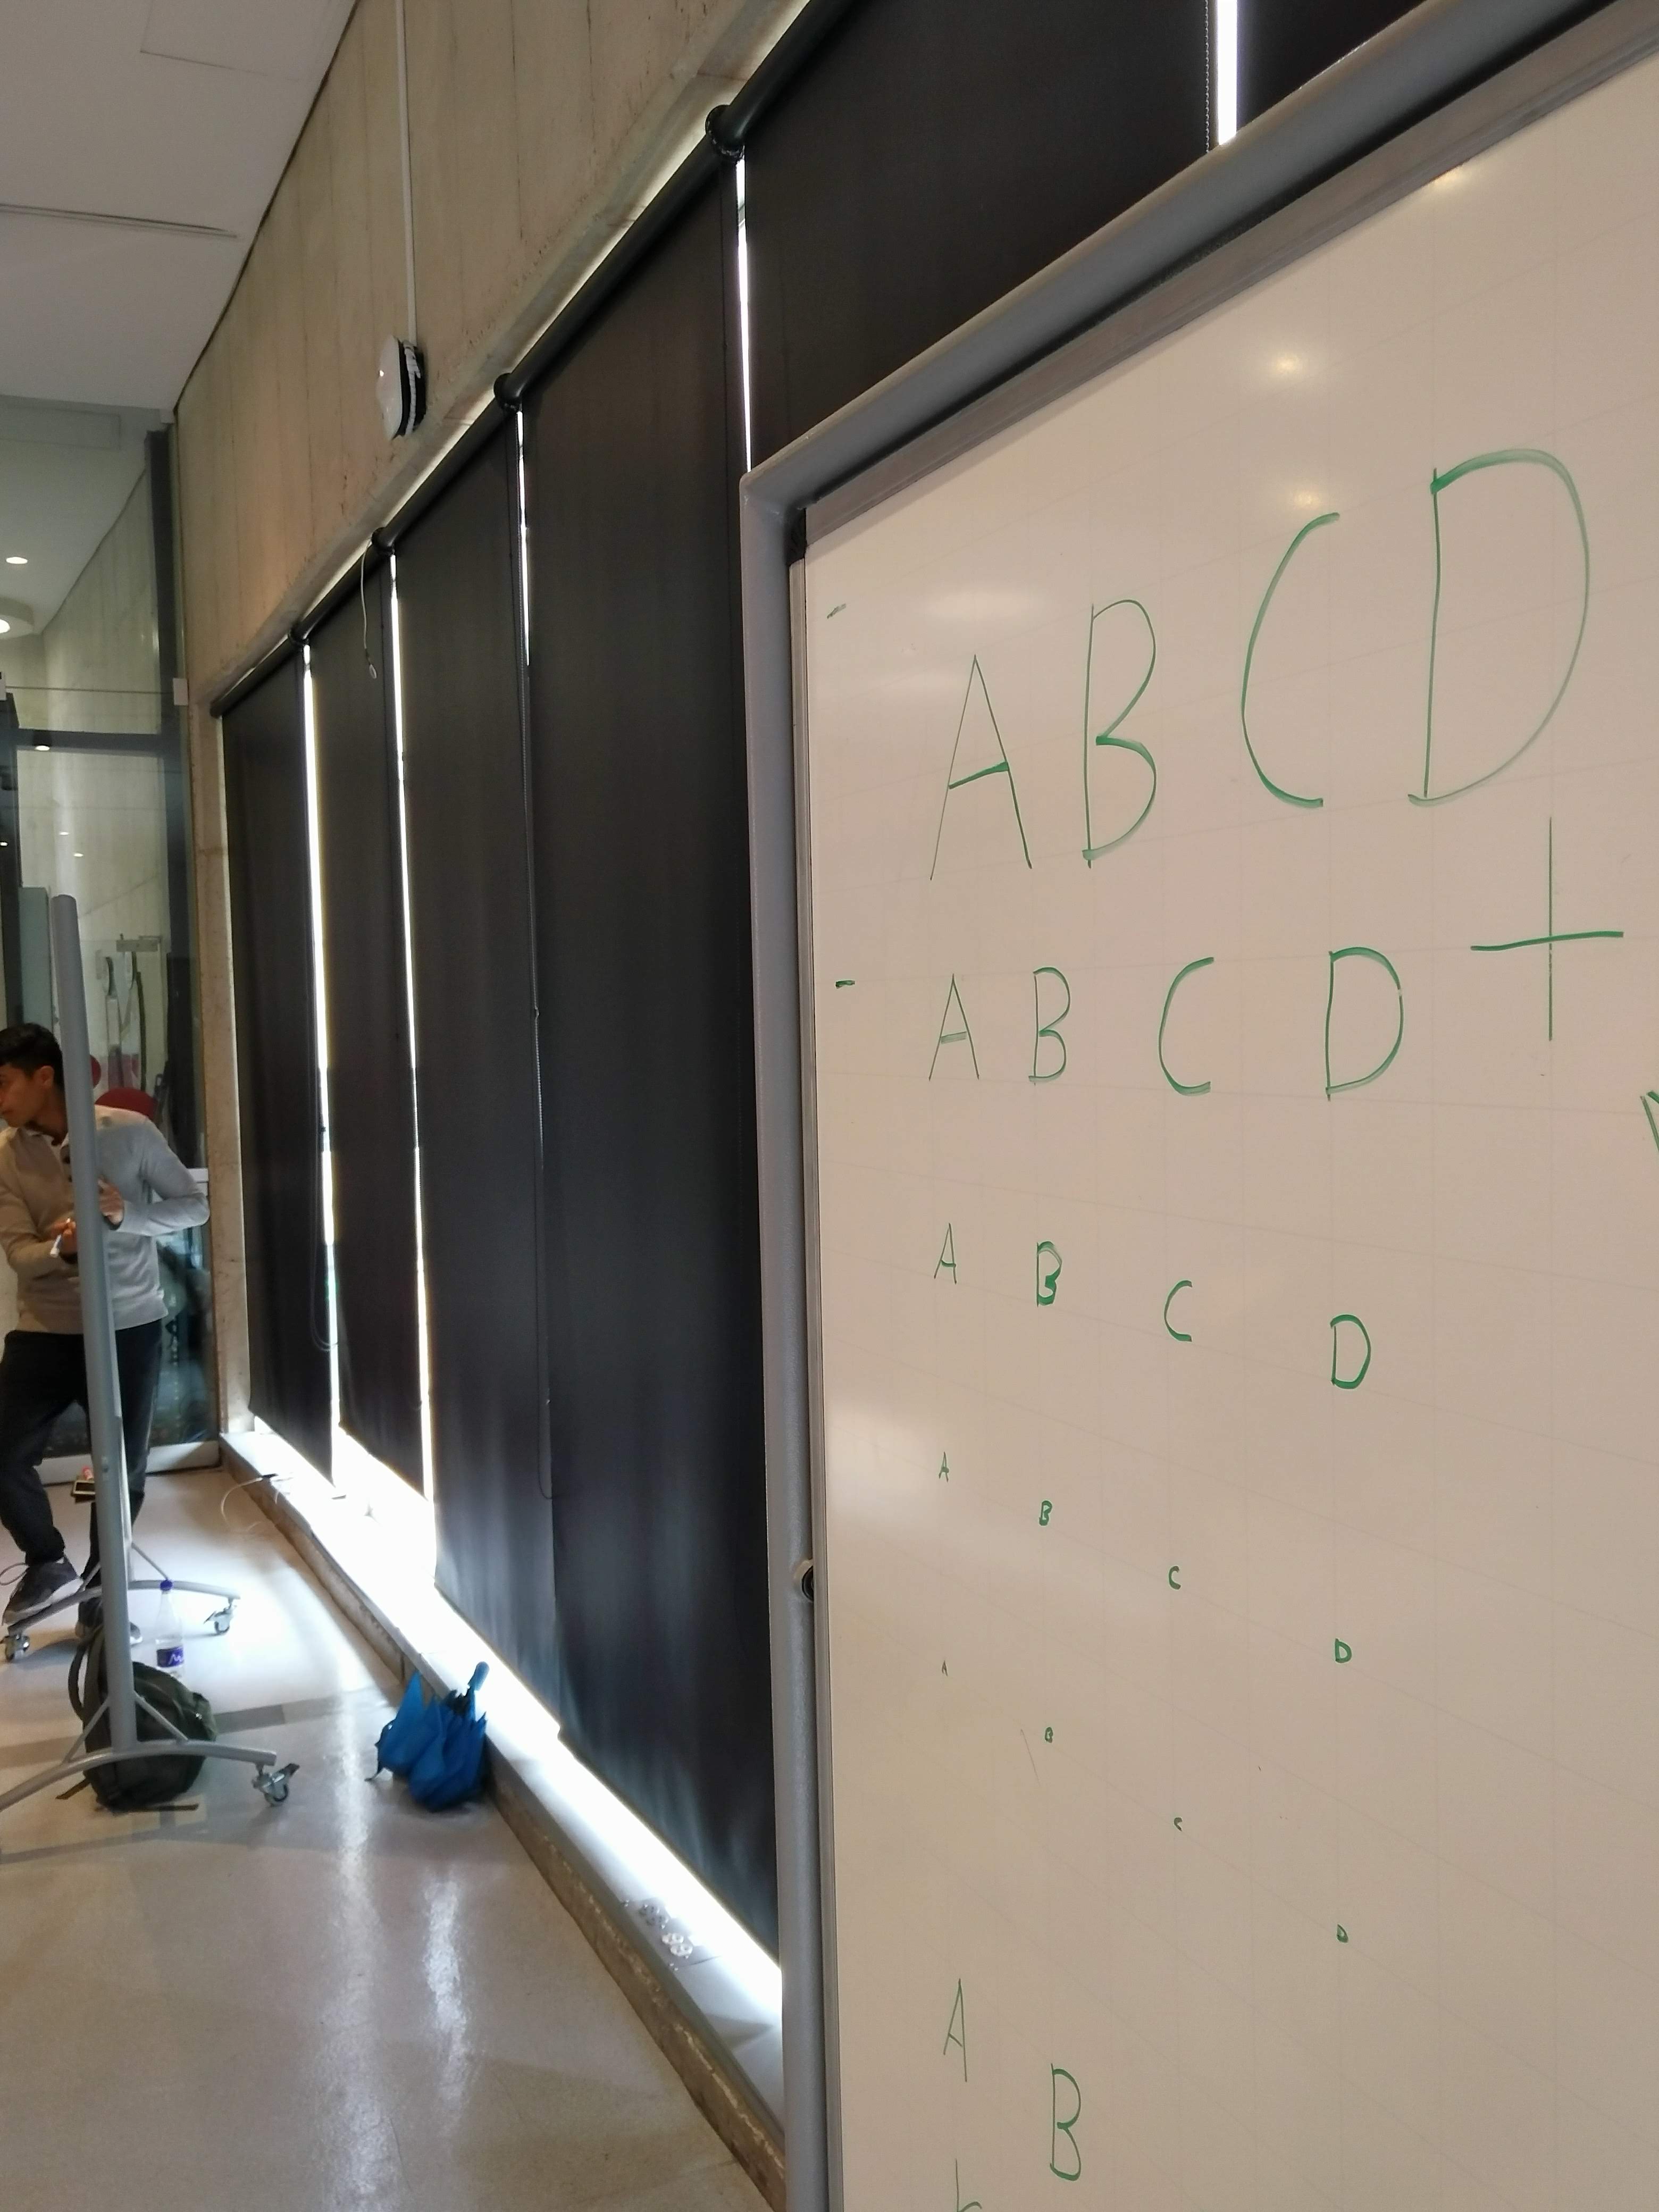 - A B C D
- A B C D +
A B C D
A B C D
A B C D
A B